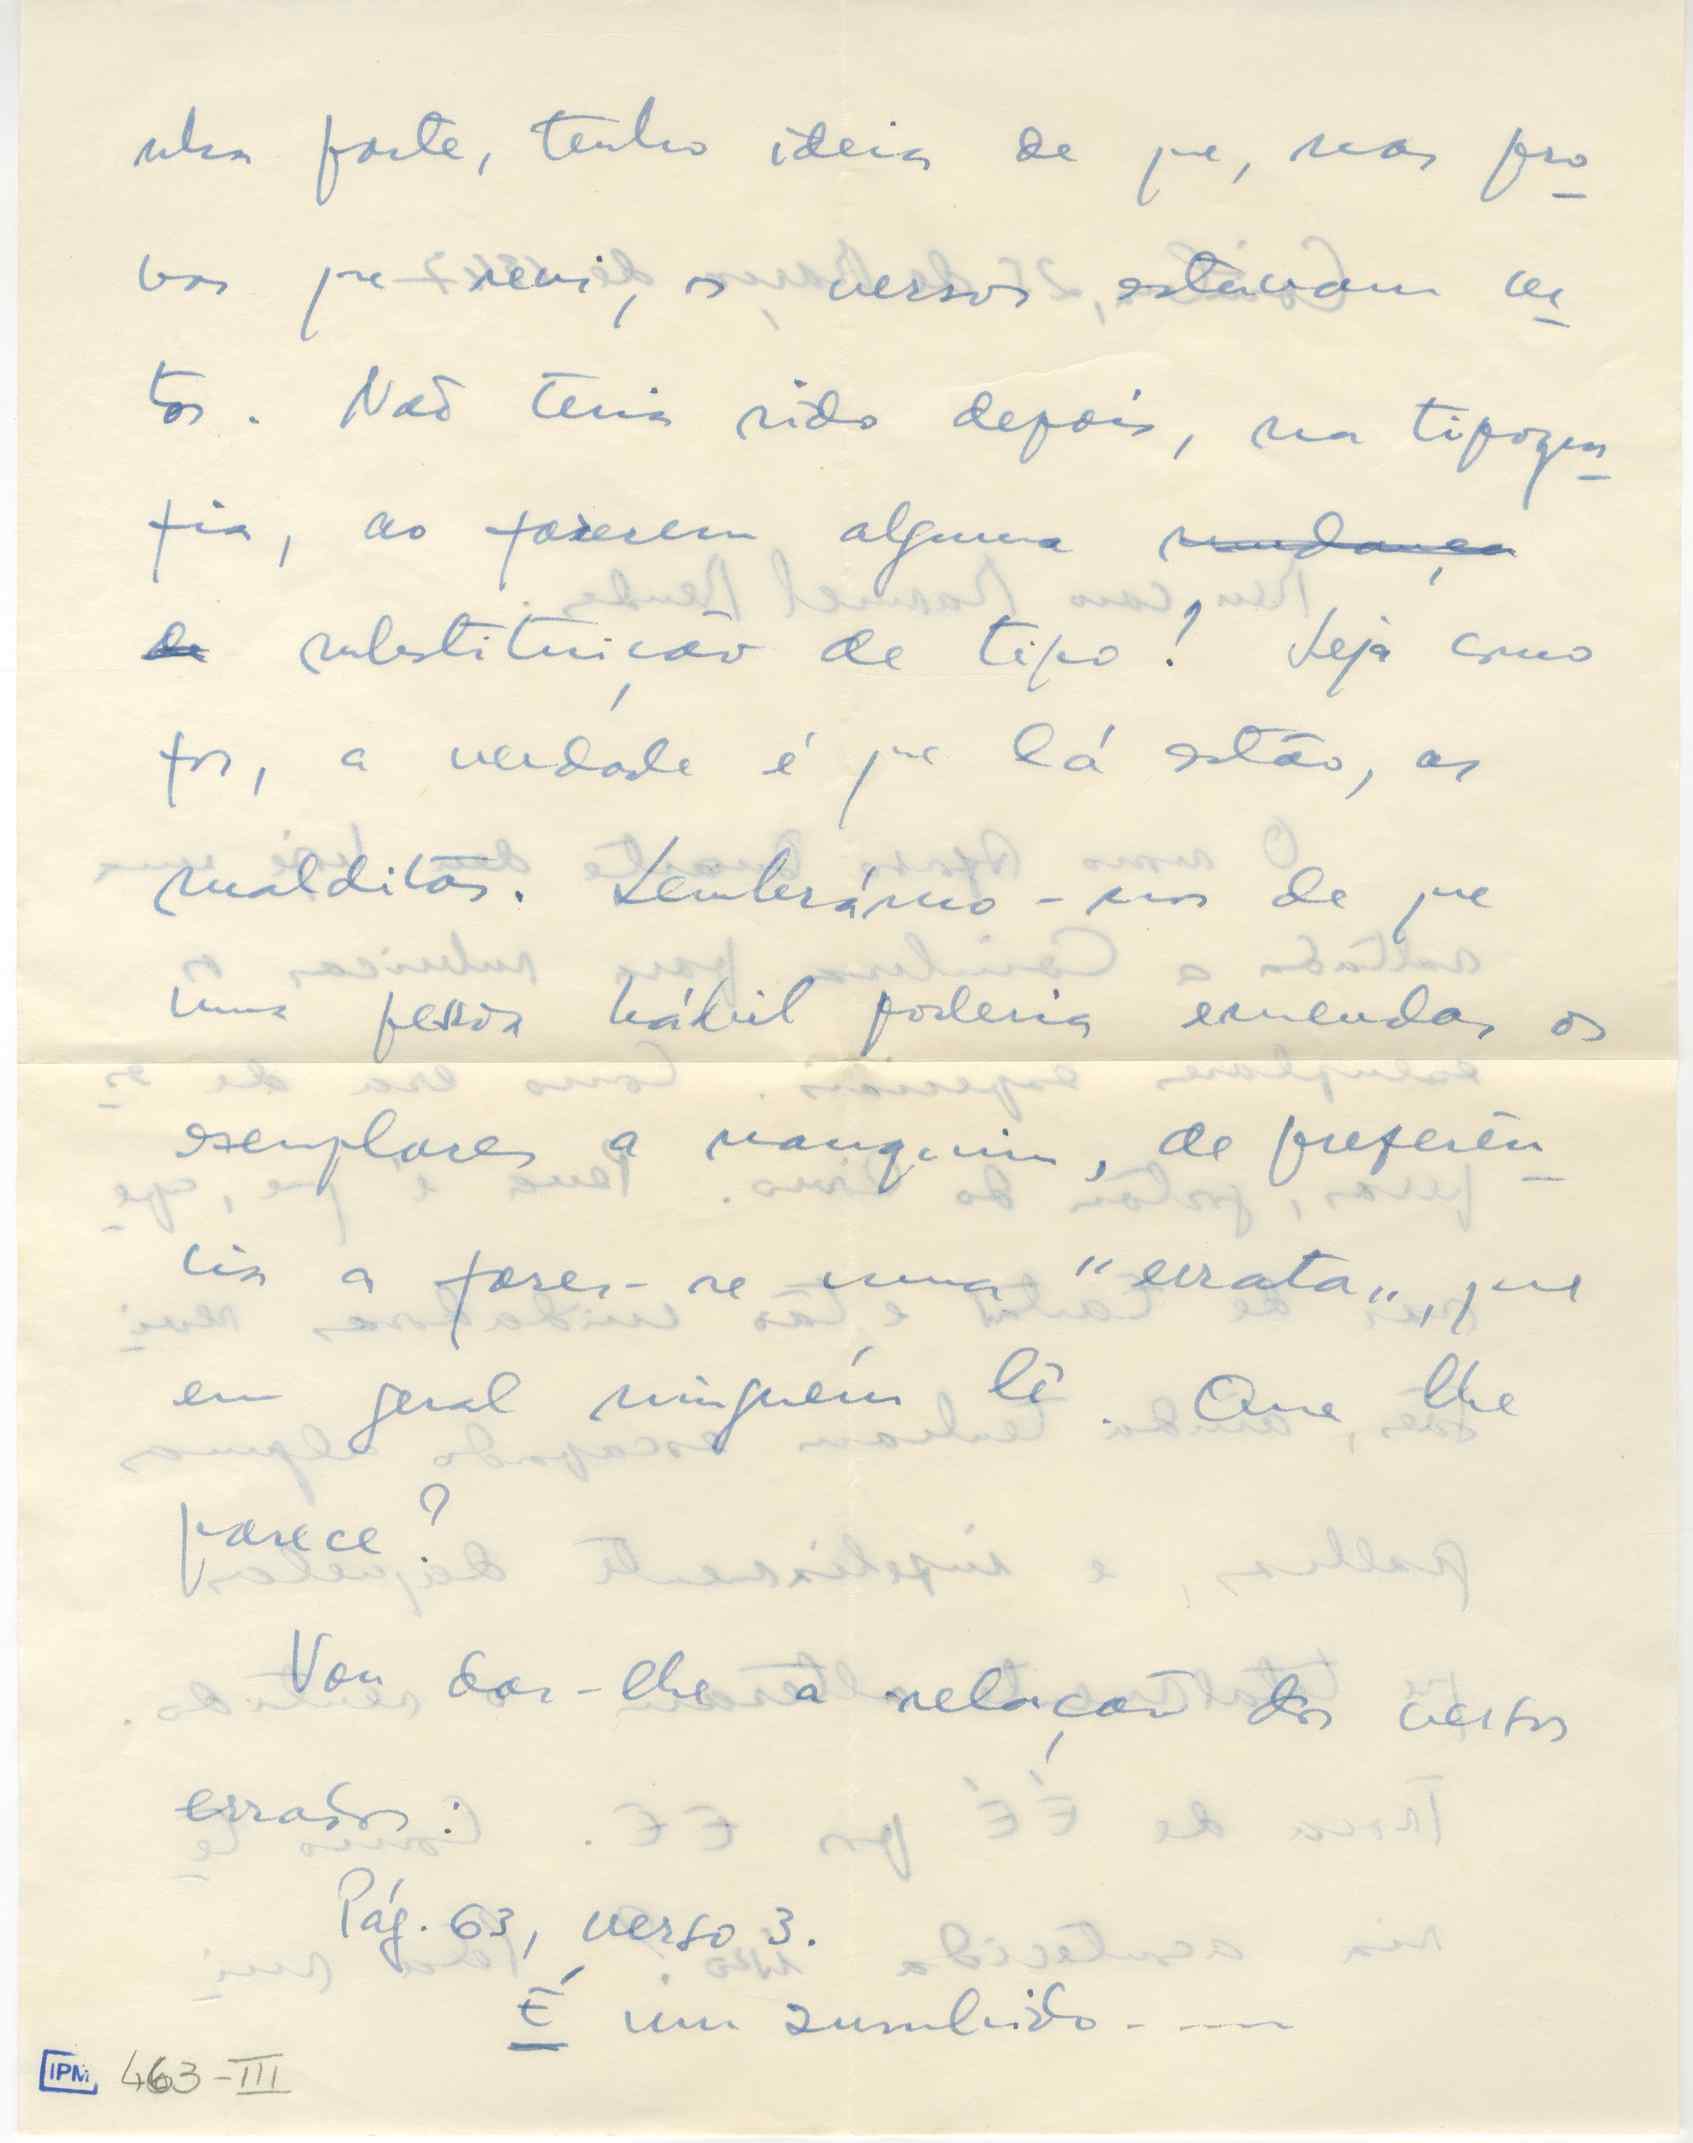 nha parte, tenho ideia de que, nas pro
vas que revi, os versos estavam cer
tos. Não teria sido depois, na tipogra
fia, ao fazerem alguma mudança
de substituição de tipo? Seja como
for, a verdade é que lá estão, as
malditas. Lembrámo-nos de que
uma pessoa hábil poderia emendar os
exemplares a nanquim, de preferên
cia a fazer-se uma "errata", que
em geral ninguém lê. Que lhe
parece?
Vou dar-lhe a relação dos versos
errados:
Pág. 63, verso 3.
É um zumbido-----
IPM 463-III